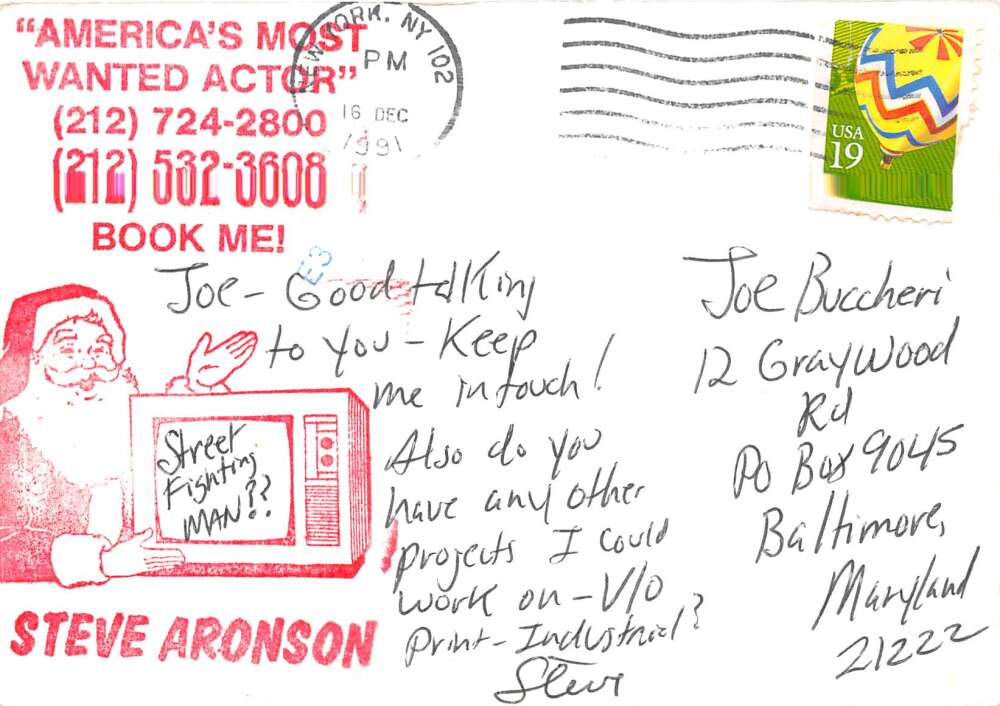 "AMERICA'S MOST
WANTED ACTOR"
(212) 724-2800
(212) 532-3608
BOOK ME!
NEW YORK, NY 102
PM
16 DEC
1991
USA
19
E3
Joe - Good talking
to you - Keep
me in touch!
Also do you
have any other
projects I could
work on - V/O
Print - Industrial?
Steve
Street
Fighting
MAN??
STEVE ARONSON
Joe Buccheri
12 Graywood
Rd
PO Box 9045
Baltimore,
Maryland
21222